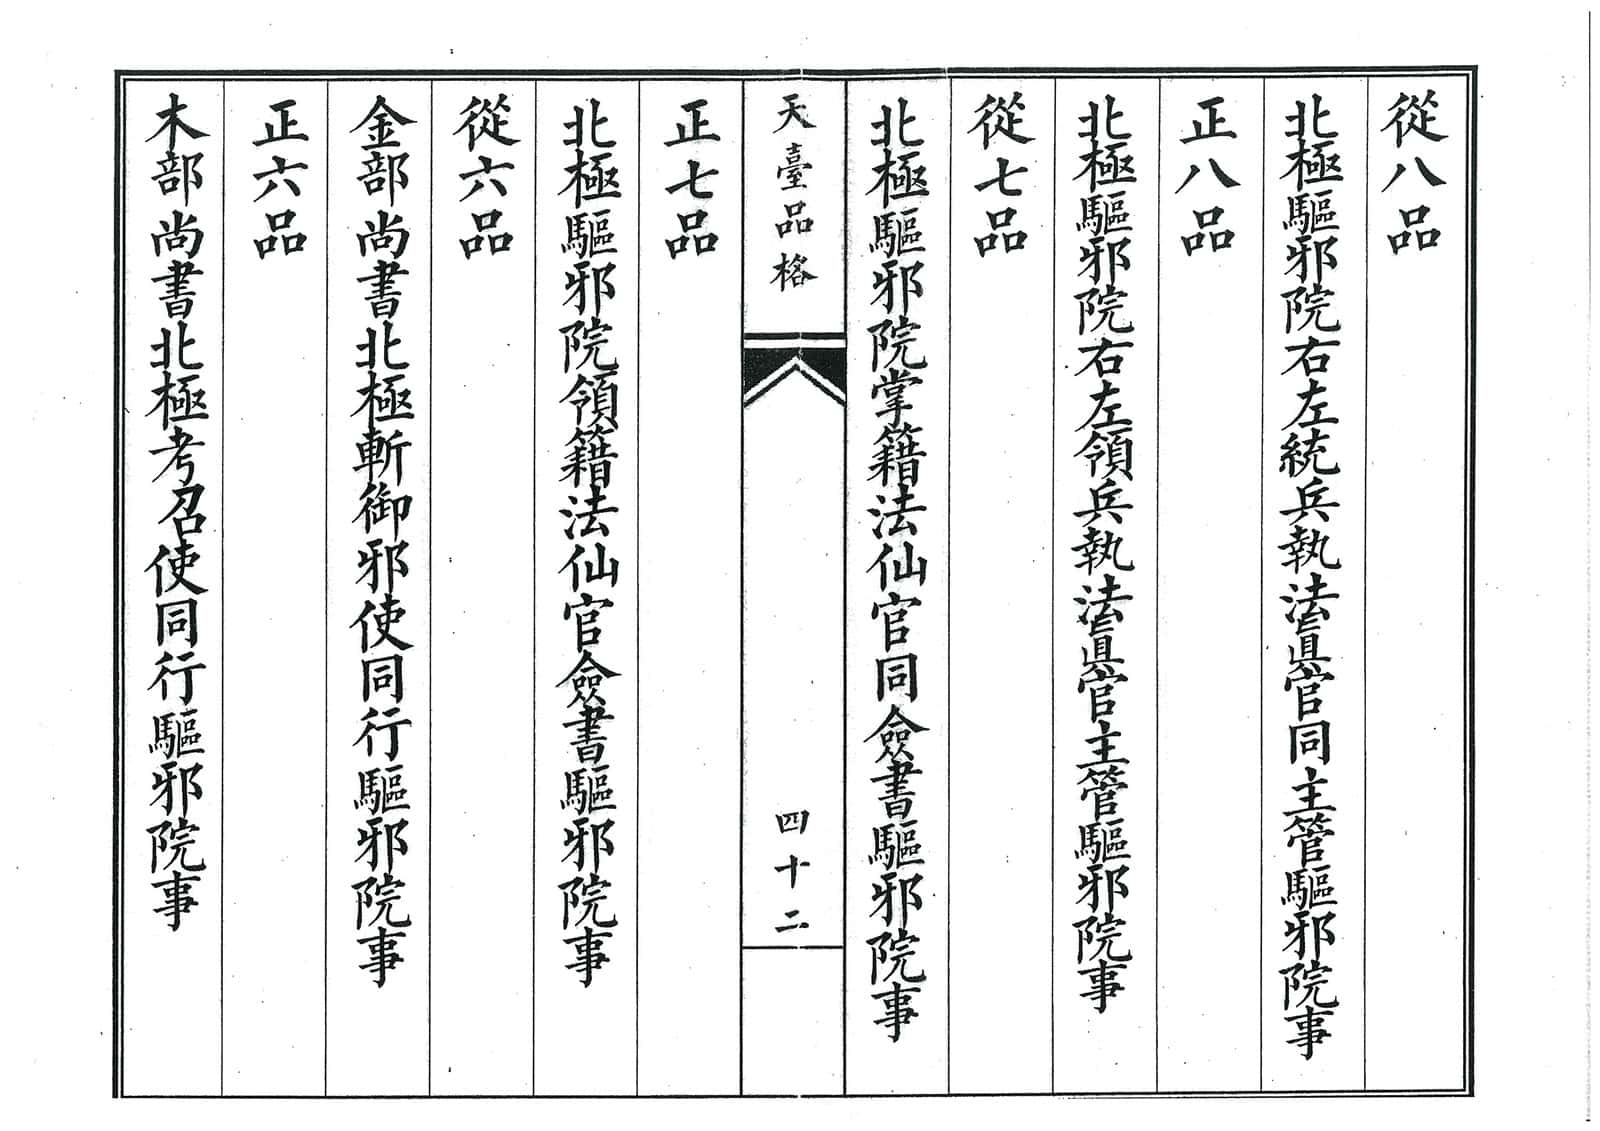 從八品
北極驅邪院右左統兵執法眞官同主管驅邪院事
正八品
北極驅邪院右左領兵執法眞官主管驅邪院事
從七品
北極驅邪院掌籍法仙官同僉書驅邪院事
天臺品格
四十二
正七品
北極驅邪院領籍法仙官僉書驅邪院事
從六品
金部尚書北極斬御邪使同行驅邪院事
正六品
木部尚書北極考召使同行驅邪院事